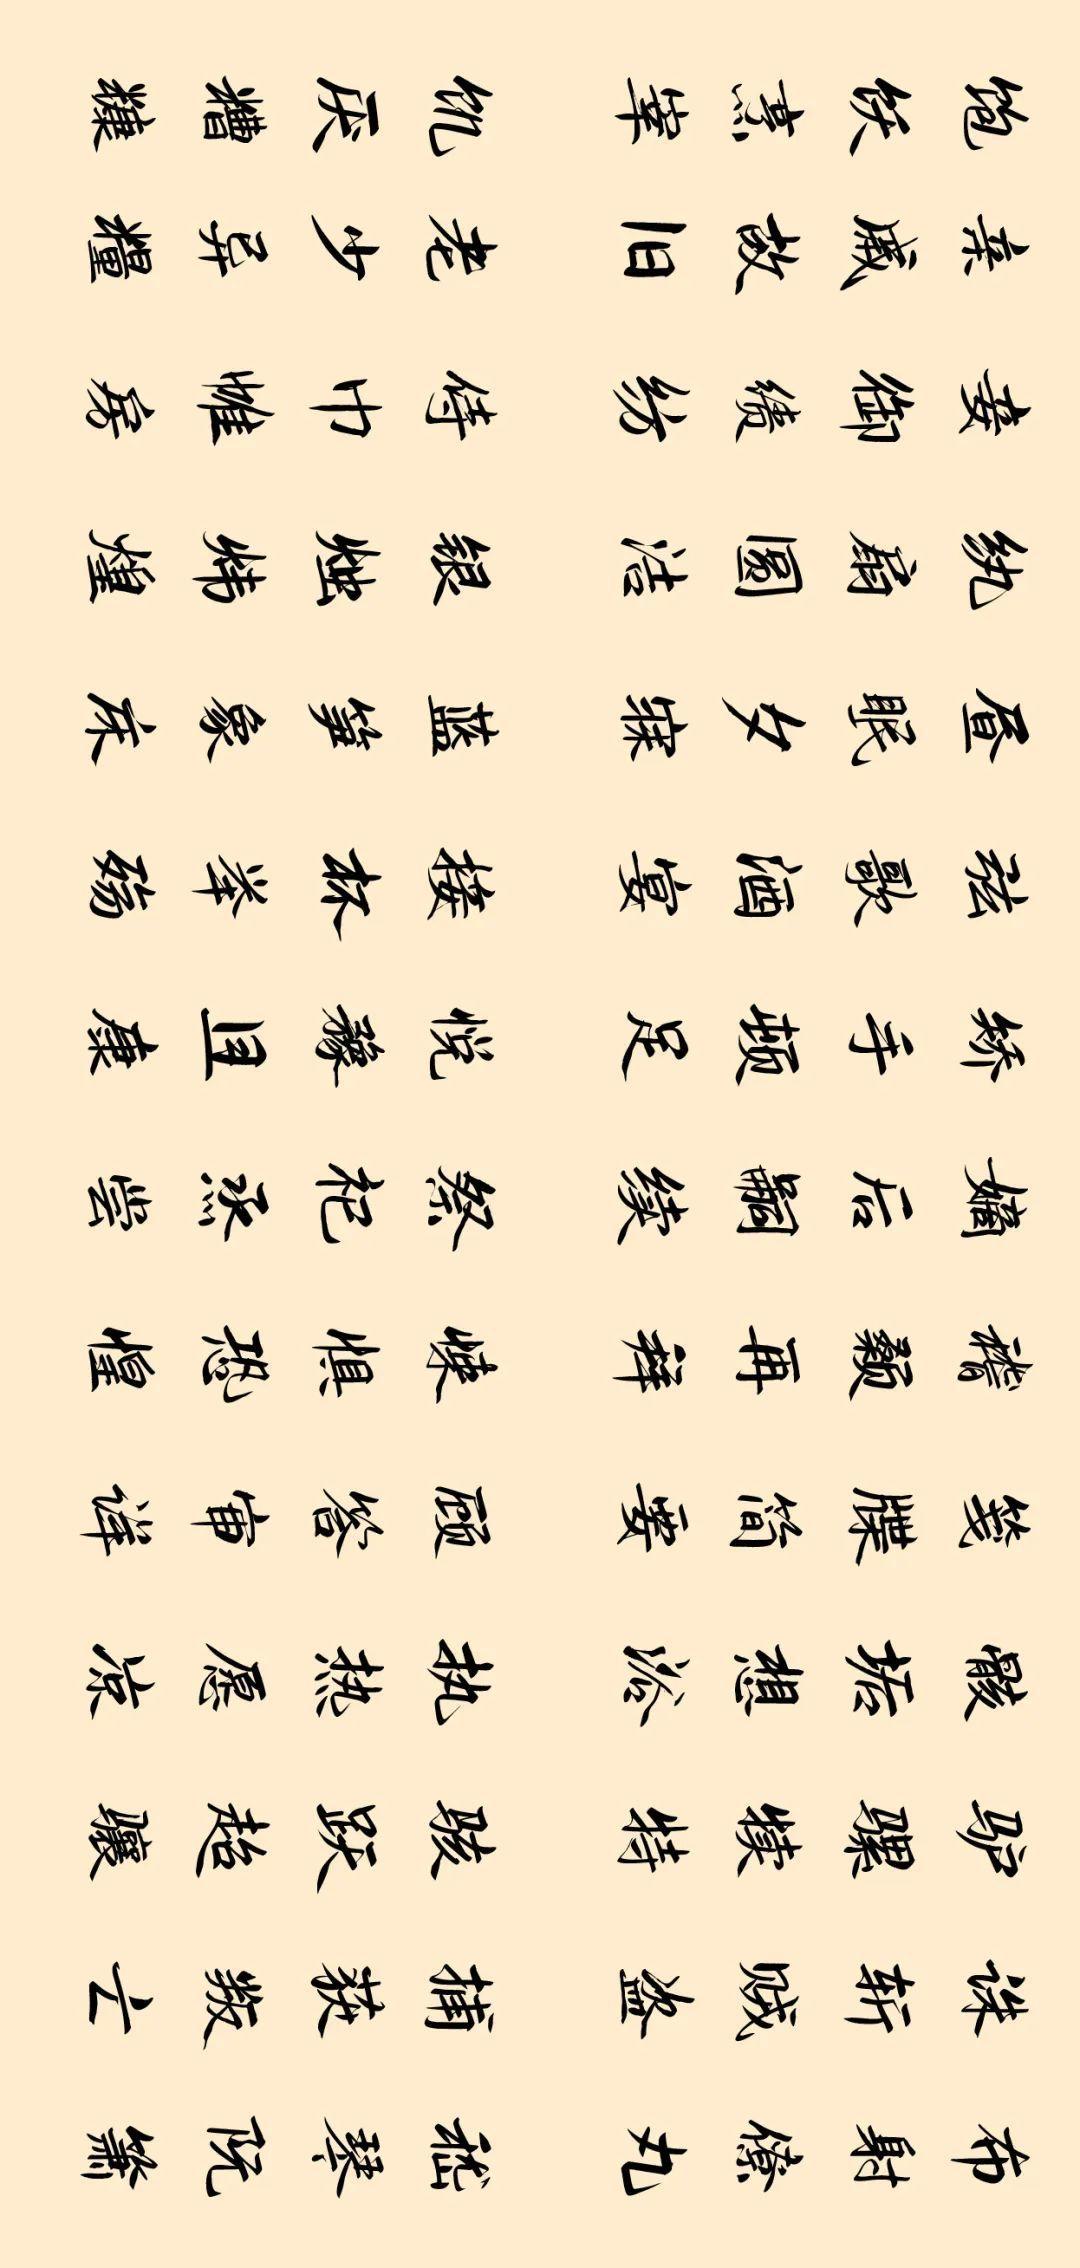 饱饫烹宰 饥厌糟糠
亲戚故旧 老少异粮
妾御绩纺 侍巾帷房
纨扇圆洁 银烛炜煌
昼眠夕寐 蓝笋象床
弦歌酒宴 接杯举殇
矫手顿足 悦豫且康
嫡后嗣续 祭祀烝尝
稽颡再拜 悚惧恐惶
笺牒简要 顾答审详
骸垢想浴 执热愿凉
驴骡犊特 骇跃超骧
诛斩贼盗 捕获叛亡
布射僚丸 嵇琴阮箫